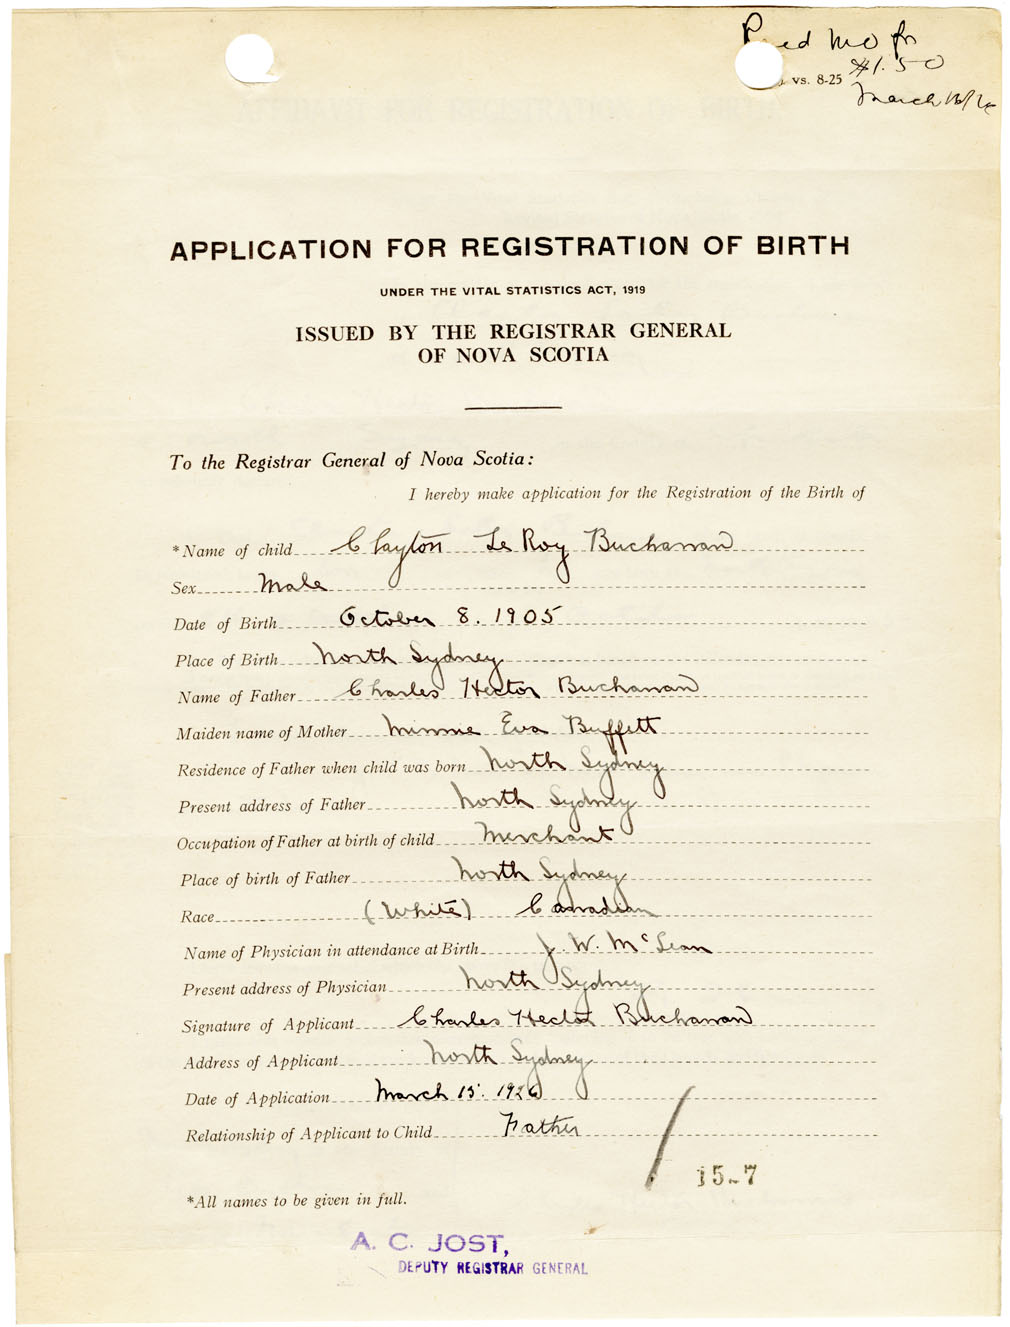 Rec'd M O for
vs. 8-25 $1.50
March 16/26
APPLICATION FOR REGISTRATION OF BIRTH
UNDER THE VITAL STATISTICS ACT, 1919
ISSUED BY THE REGISTRAR GENERAL
OF NOVA SCOTIA
To the Registrar General of Nova Scotia:
I hereby make application for the Registration of the Birth of
*Name of child Clayton Le Roy Buchanan
Sex Male
Date of Birth October 8. 1905
Place of Birth North Sydney
Name of Father Charles Hector Buchanan
Maiden name of Mother Minnie Eva Buffett
Residence of Father when child was born North Sydney
Present address of Father North Sydney
Occupation of Father at birth of child Merchant
Place of birth of Father North Sydney
Race (White) Canadian
Name of Physician in attendance at Birth J. W. McLean
Present address of Physician North Sydney
Signature of Applicant Charles Hector Buchanan
Address of Applicant North Sydney
Date of Application March 15. 1926
Relationship of Applicant to Child Father
*All names to be given in full.
A. C. JOST,
DEPUTY REGISTRAR GENERAL